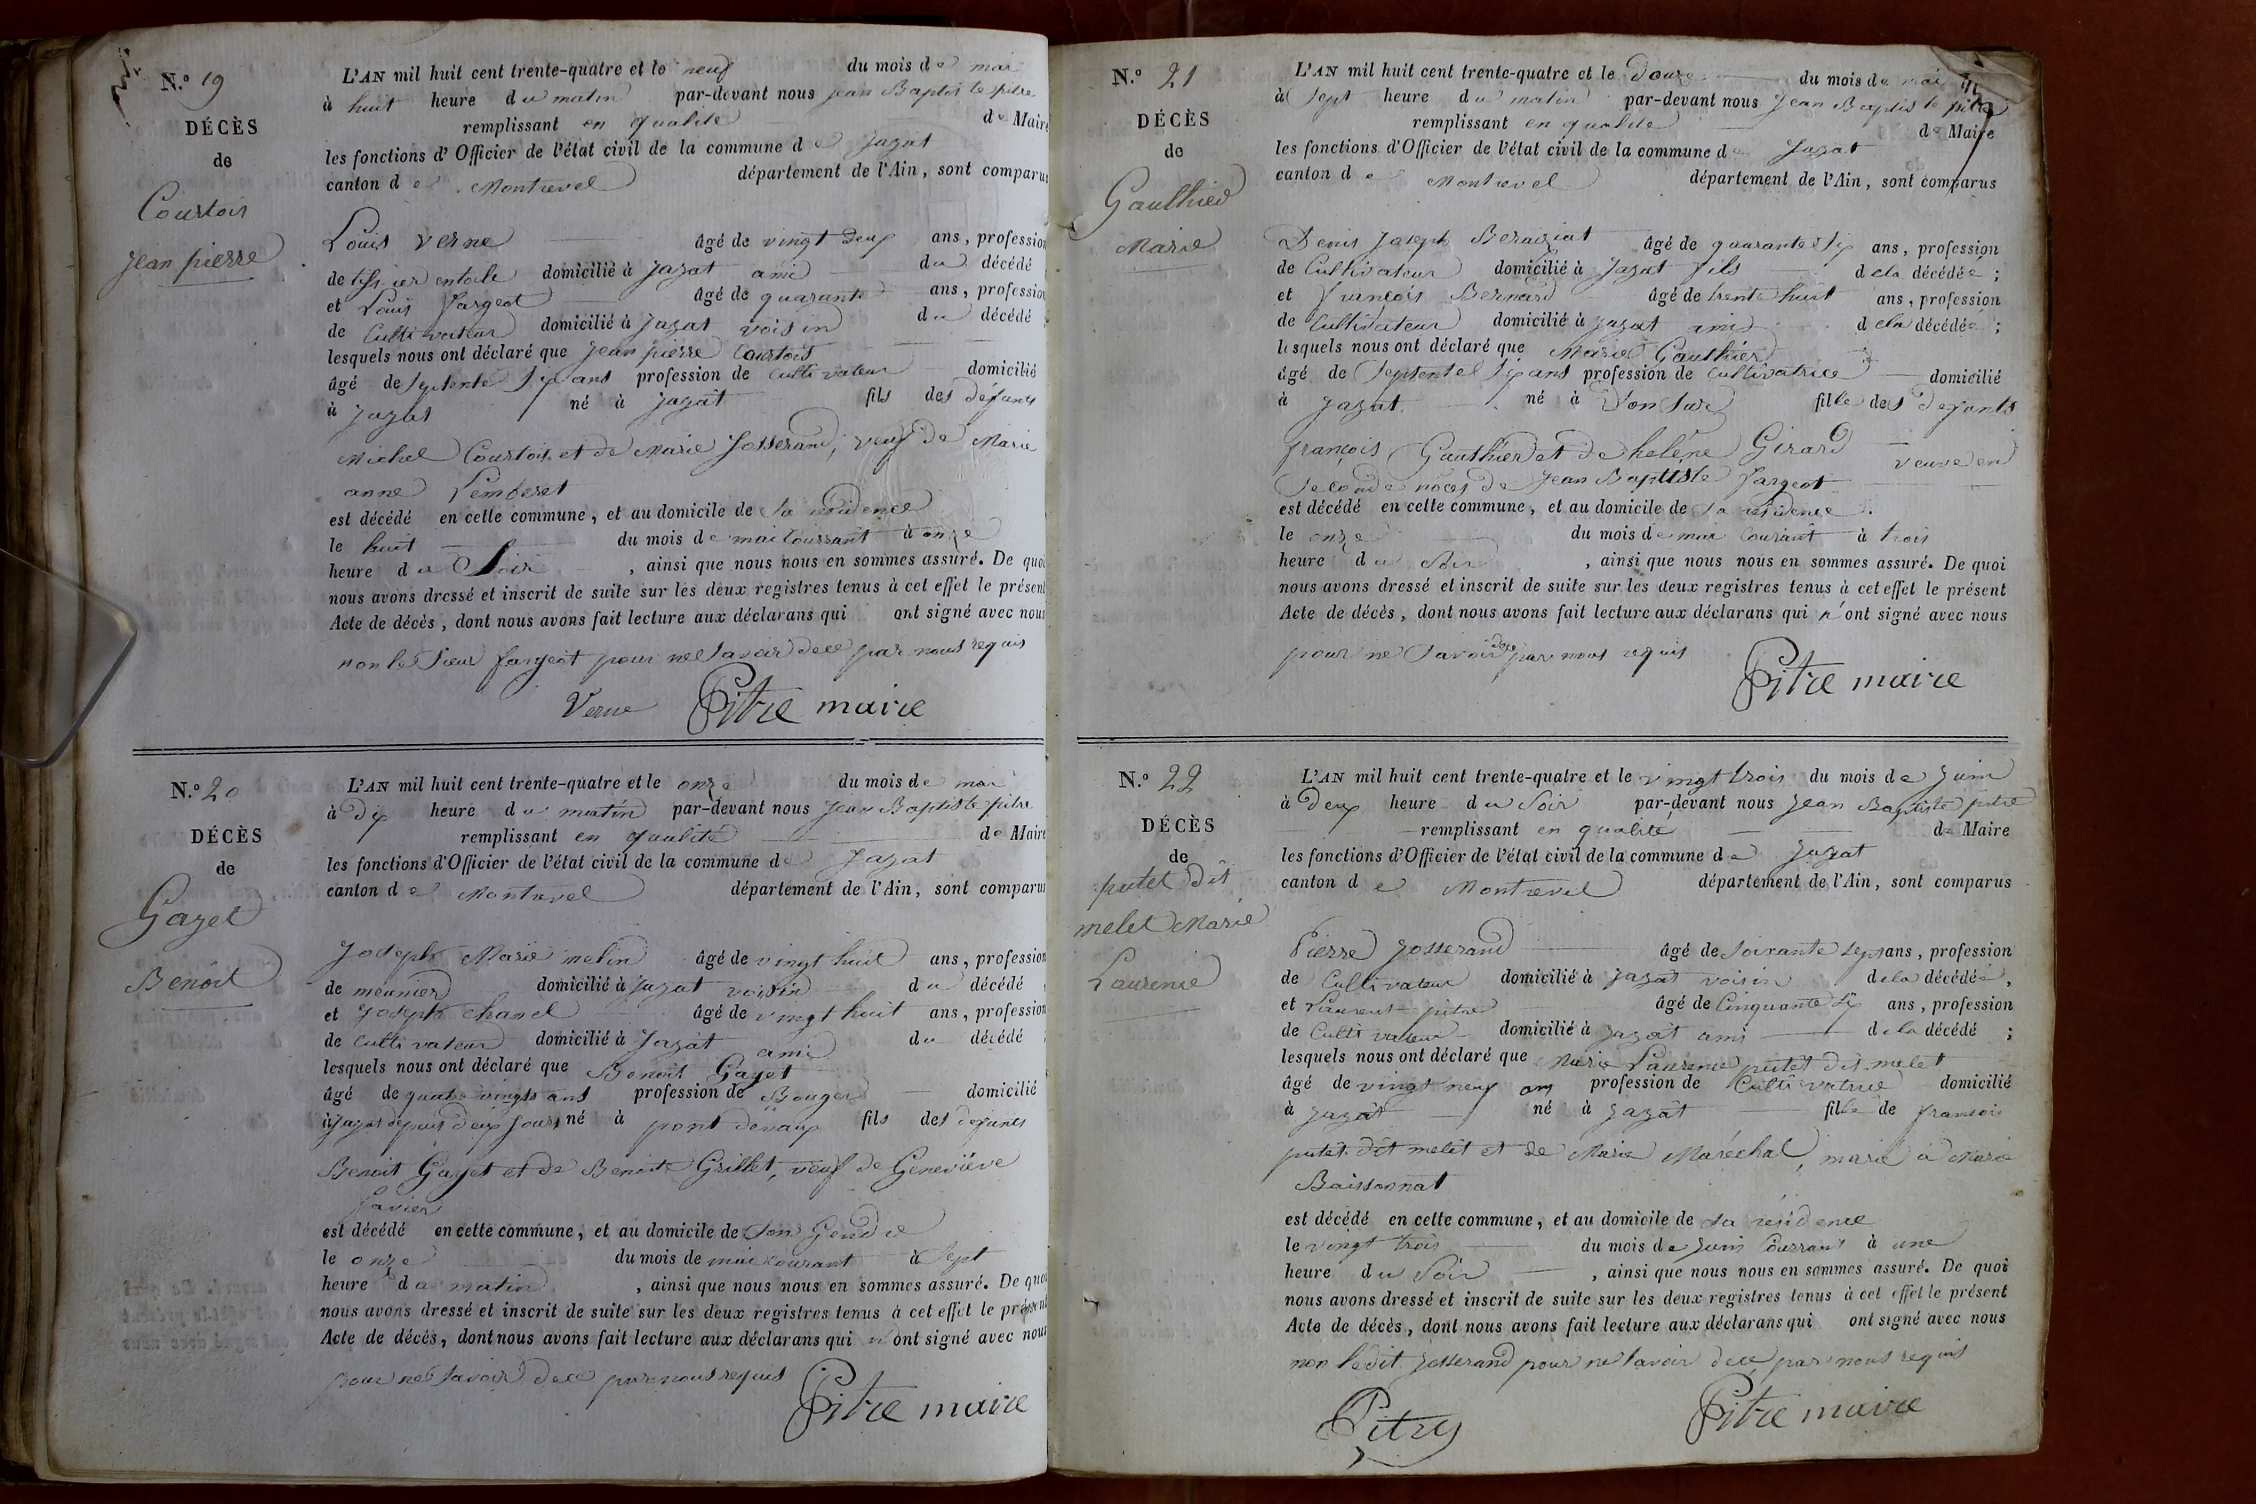 N.º 19
DÉCÈS
de
Courtois
jean pierre
L'AN mil huit cent trente-quatre et le neuf du mois de mai
à huit heure du matin par-devant nous jean Baptiste pitre
remplissant en qualité de Maire
les fonctions d'Officier de l'état civil de la commune de jayat
canton de Montrevel département de l'Ain, sont comparus
Louis Verne âgé de vingt deux ans, profession
de tissier en toile domicilié à jayat ami du décédé
et Louis fargeot âgé de quarante ans, profession
de Cultivateur domicilié à jayat voisin du décédé
lesquels nous ont déclaré que jean pierre Courtois
âgé de septente six ans profession de cultivateur domicilié
à jayat né à jayat fils des défunts
Michel Courtois et de Marie Josserand, veuf de Marie
anne
est décédé en cette commune, et au domicile de sa résidence
le huit du mois de mai courrant à onze
heure du soir, ainsi que nous nous en sommes assuré. De quoi
nous avons dressé et inscrit de suite sur les deux registres tenus à cet effet le présent
Acte de décès, dont nous avons fait lecture aux déclarans qui ont signé avec nous
non le sieur fargeot pour ne savoir de ce par nous requis
Verne Pitre maire
N.º 20
DÉCÈS
de
Gayet
Benoit
L'AN mil huit cent trente-quatre et le onze du mois de mai
à dix heure du matin par-devant nous jean Baptiste pitre
remplissant en qualité de Maire
les fonctions d'Officier de l'état civil de la commune de jayat
canton de Montrevel département de l'Ain, sont comparus
Joseph Marie melin âgé de vingt huit ans, profession
de meunier domicilié à jayat voisin du décédé
et Joseph Chanel âgé de vingt huit ans, profession
de cultivateur domicilié à jayat ami du décédé
lesquels nous ont déclaré que Benoit Gayet
âgé de quatre vingts ans profession de domicilié
à jayat depuis deux jours né à pont devaux fils des defunts
Benoit Gayet et de Benoite Grillet, veuf de Geneviève
est décédé en cette commune, et au domicile de son Gendre
le onze du mois de mai courant à sept
heure du matin, ainsi que nous nous en sommes assuré. De quoi
nous avons dressé et inscrit de suite sur les deux registres tenus à cet effet le présent
Acte de décès, dont nous avons fait lecture aux déclarans qui n'ont signé avec nous
pour ne savoir de ce par nous requis
Pitre maire
N.º 21
DÉCÈS
de
Gaulthier
Marie
L'AN mil huit cent trente-quatre et le douze du mois de mai
à sept heure du matin par-devant nous jean Baptiste pitre
remplissant en qualité de Maire
les fonctions d'Officier de l'état civil de la commune de jayat
canton de Montrevel département de l'Ain, sont comparus
Denis Joseph âgé de quarante six ans, profession
de Cultivateur domicilié à jayat fils de la décédée;
et françois Bernard âgé de trente huit ans, profession
de cultivateur domicilié à jayat ami de la décédée;
lesquels nous ont déclaré que Marie Gaulthier
âgé de septente six ans profession de cultivatrice domicilié
à jayat né à fille des defunts
françois Gaulthier et de helène Girard veuve en
seconde noces de jean Baptiste fargeot
est décédé en cette commune, et au domicile de sa résidence
le onze du mois de mai courant à trois
heure du soir, ainsi que nous nous en sommes assuré. De quoi
nous avons dressé et inscrit de suite sur les deux registres tenus à cet effet le présent
Acte de décès, dont nous avons fait lecture aux déclarans qui n'ont signé avec nous
pour ne savoir de ce par nous requis
Pitre maire
N.º 22
DÉCÈS
de
putet dit
melet Marie
Laurence
L'AN mil huit cent trente-quatre et le vingt trois du mois de juin
à deux heure du soir par-devant nous jean Baptiste pitre
remplissant en qualité de Maire
les fonctions d'Officier de l'état civil de la commune de jayat
canton de Montrevel département de l'Ain, sont comparus
Pierre Josserand âgé de soixante sept ans, profession
de Cultivateur domicilié à jayat voisin de la décédée,
et Laurent pitre âgé de Cinquante six ans, profession
de Cultivateur domicilié à jayat ami de la décédé;
lesquels nous ont déclaré que Marie Laurence putet dit melet
âgé de vingt neuf ans profession de Cultivatrice domicilié
à jayat né à jayat fille de francois
putet dit melet et de Marie Maréchal, marié à Marie
est décédé en cette commune, et au domicile de sa résidence
le vingt trois du mois de juin courrant à une
heure du soir, ainsi que nous nous en sommes assuré. De quoi
nous avons dressé et inscrit de suite sur les deux registres tenus à cet effet le présent
Acte de décès, dont nous avons fait lecture aux déclarans qui ont signé avec nous
non ledit josserand pour ne savoir de ce par nous requis
Pitre maire